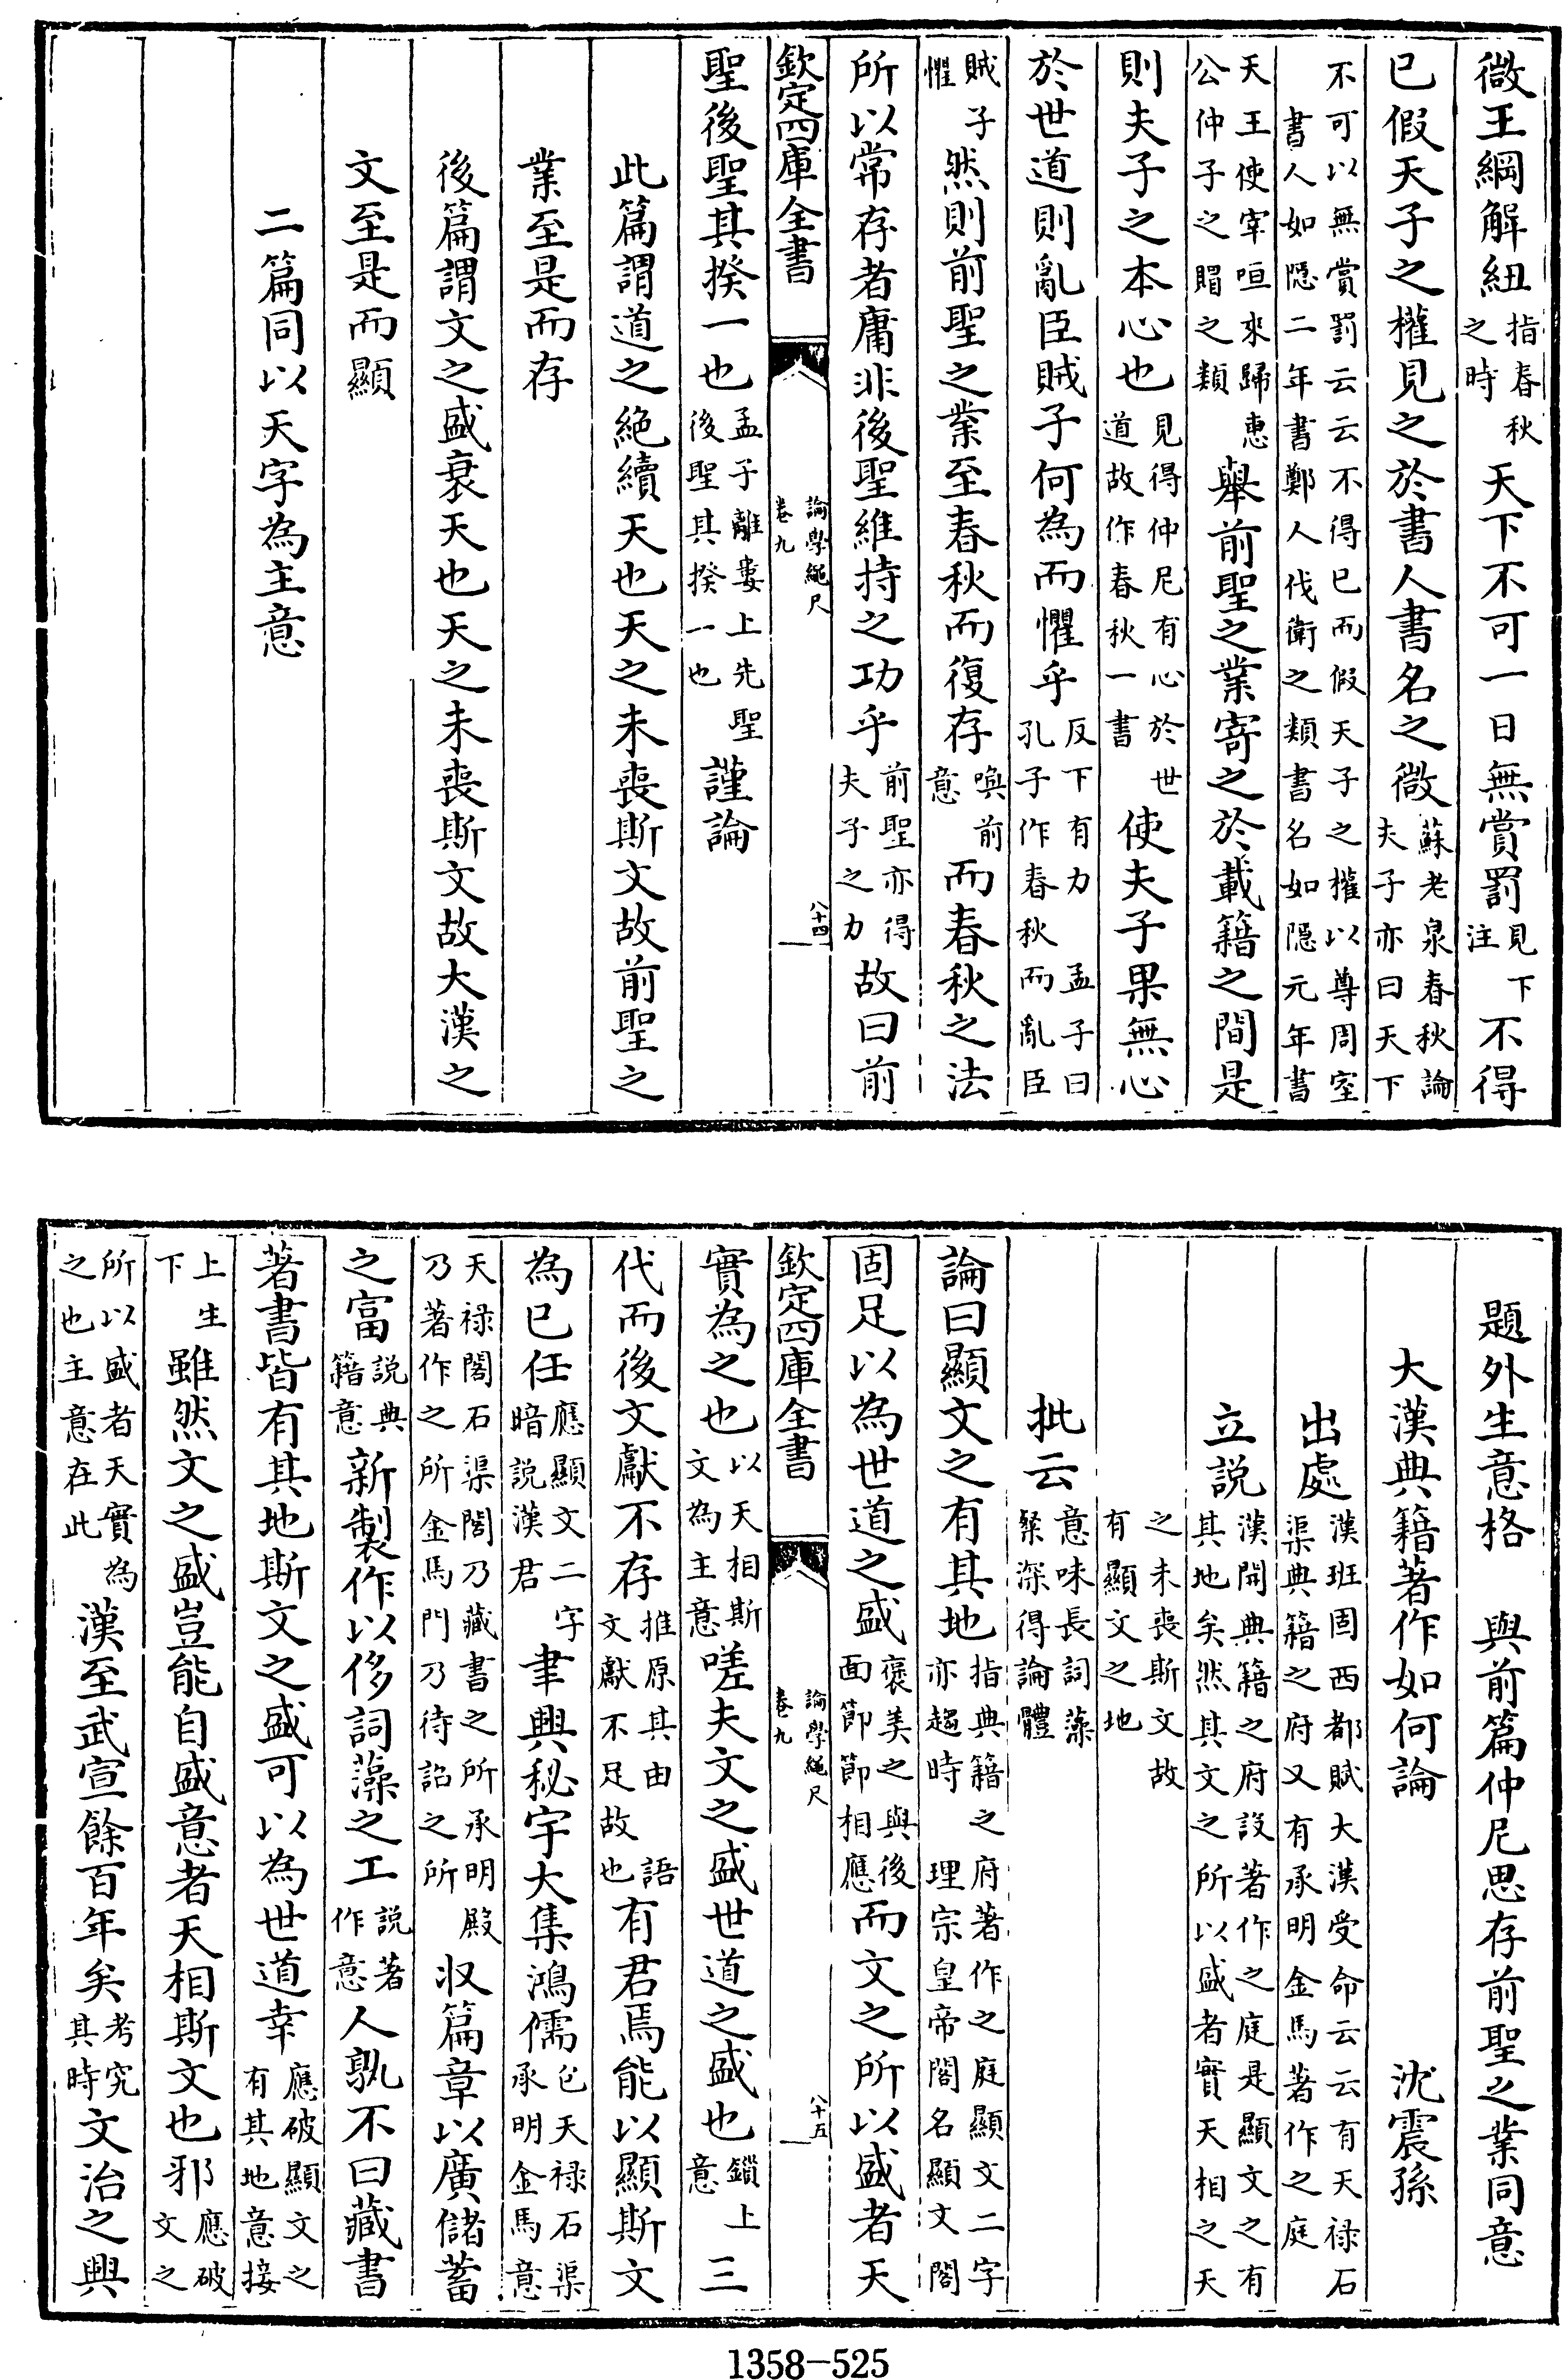 微王綱解紐指春秋之時天下不可一日無賞罰見下注不得
已假天子之權見之於書人書名之微蘇老泉春秋論夫子亦曰天下
不可以無賞罰云云不得已而假天子之權以尊周室書人如隠二年書鄭人伐衛之類書名如隠元年書
天王使宰咺來歸惠公仲子之賵之類舉前聖之業寄之於載籍之間是
則夫子之本心也見得仲尼有心於世道故作春秋一書使夫子果無心
於世道則亂臣賊子何為而懼乎反下有力孔子作春秋孟子曰而亂臣
賊子懼然則前聖之業至春秋而復存喚前意而春秋之法
所以常存者庸非後聖維持之功乎前聖亦得夫子之力故曰前
欽定四庫全書
論學繩尺
卷九
八十四
聖後聖其揆一也孟子離婁上先聖後聖其揆一也謹論
此篇謂道之絶續天也天之未喪斯文故前聖之
業至是而存
後篇謂文之盛衰天也天之未喪斯文故大漢之
文至是而顯
二篇同以天字為主意
題外生意格 與前篇仲尼思存前聖之業同意
大漢典籍著作如何論 沈震孫
出處漢班固西都賦大漢受命云云有天禄石渠典籍之府又有承明金馬著作之庭
立説漢開典籍之府設著作之庭是顯文之有其地矣然其文之所以盛者實天相之天
之未喪斯文故有顯文之地
批云意味長詞藻粲深得論體
論曰顯文之有其地指典籍之府著作之庭顯文二字亦趨時理宗皇帝閣名顯文閣
固足以為世道之盛褒美之與後面節節相應而文之所以盛者天
欽定四庫全書
論學繩尺
卷九
八十五
實為之也以天相斯文為主意嗟夫文之盛世道之盛也鎖上意三
代而後文獻不存推原其由語文獻不足故也有君焉能以顯斯文
為已任應顯文二字暗説漢君聿興秘宇大集鴻儒包天禄石渠承明金馬意
天禄閣石渠閣乃藏書之所承明殿乃著作之所金馬門乃待詔之所収篇章以廣儲蓄
之富説典籍意新製作以侈詞藻之工説著作意人孰不曰藏書
著書皆有其地斯文之盛可以為世道幸應破顯文之有其地意接
上生下雖然文之盛豈能自盛意者天相斯文也邪應破文之
所以盛者天實為之也主意在此漢至武宣餘百年矣考究其時文治之興
1358-525